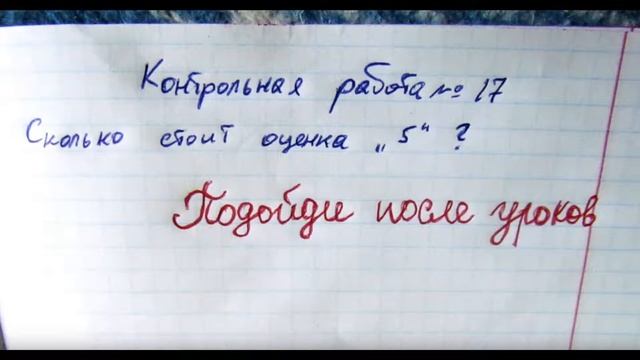 Контрольная работа № 17
Сколько стоит оценка „5“ ?
Подойди после уроков